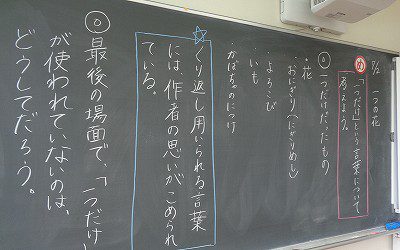 5/2 一つの花
め 「一つだけ」という言葉について
考えよう。
◎一つだけだったもの
・花
・おにぎり(にぎりめし)
・いも
・よろこび
・かぼちゃのにつけ
くり返し用いられる言葉
には作者の思いがこめられ
ている。
◎最後の場面で、「一つだけ」
が使われていないのは、
どうしてだろう。